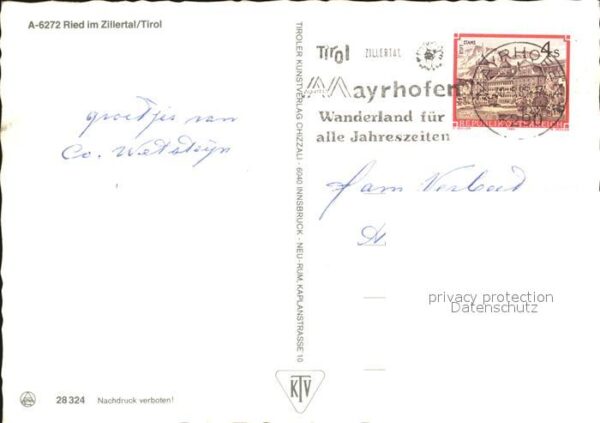 A-6272 Ried im Zillertal/Tirol
groetjes van
Co. Wetsteyn
28 324 Nachdruck verboten!
TIROLER KUNSTVERLAG CHIZZALI · 6040 INNSBRUCK - NEU-RUM, KAPLANSTRASSE 10
KTV
Tirol ZILLERTAL
Mayrhofen
Wanderland für
alle Jahreszeiten
STIFT STAMS
4 S
REPUBLIK ÖSTERREICH
MAYRHOFEN
Fam Verbad
privacy protection
Datenschutz